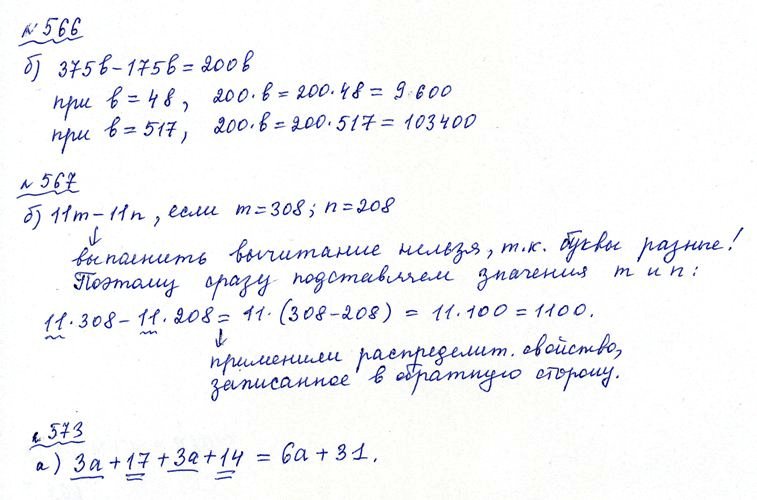 № 566
б) 375в − 175в = 200в
при в = 48, 200·в = 200·48 = 9 600
при в = 517, 200·в = 200·517 = 103400
№ 567
б) 11m − 11n, если m = 308; n = 208
↓
выполнить вычитание нельзя, т.к. буквы разные!
Поэтому сразу подставляем значения m и n:
11·308 − 11·208 = 11·(308 − 208) = 11·100 = 1100.
↓
применили распределит. свойство,
записанное в обратную сторону.
№ 573
а) 3а + 17 + 3а + 14 = 6а + 31.